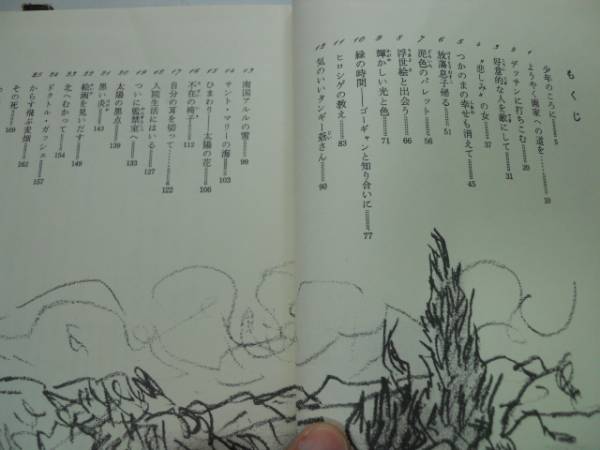 もくじ
少年のころに 5
1 ようやく画家への道を…… 10
2 デッサンに打ちこむ 20
3 好意的な人を敵にして 31
4 “悲しみ”の女 37
5 つかのまの幸せも消えて 45
6 放蕩息子帰る 51
7 泥色のパレット 56
8 浮世絵と出会う 66
9 輝かしい光と色 71
10 緑の時間——ゴーギャンと知り合いに 77
11 ヒロシゲの教え 83
12 気のいいタンギー爺さん 90
13 南国アルルの雪 98
14 サント・マリーの海 103
15 ひまわり—太陽の花 106
16 不在の椅子 112
17 自分の耳を切って…… 122
18 人間生活にはいる 127
19 ついに監禁室へ 133
20 太陽の黒点 139
21 黒い炎 143
22 絵画を見いだす 149
23 北へむかって 154
24 ドクトル・ガッシェ 157
25 からす飛ぶ麦畑 162
その死 169